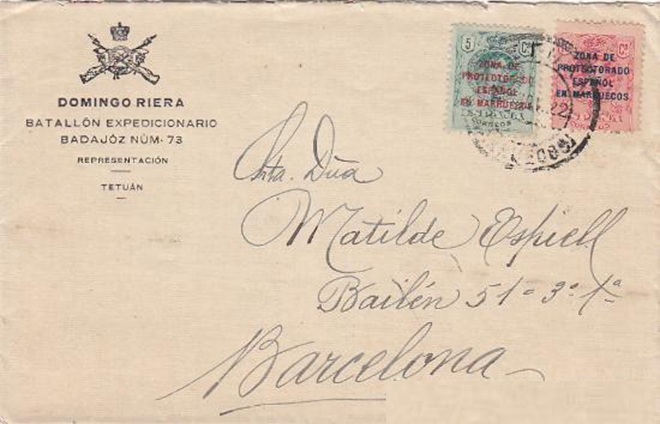 DOMINGO RIERA
BATALLÓN EXPEDICIONARIO
BADAJÓZ NÚM. 73
REPRESENTACIÓN
TETUÁN
5 Cs
ZONA DE
PROTECTORADO
ESPAÑOL
EN MARRUECOS
CORREOS
Cs
ZONA DE
PROTECTORADO
ESPAÑOL
EN MARRUECOS
22
Srta. Dña
Matilde Espiell
Bailén 51 = 3º 1ª
Barcelona